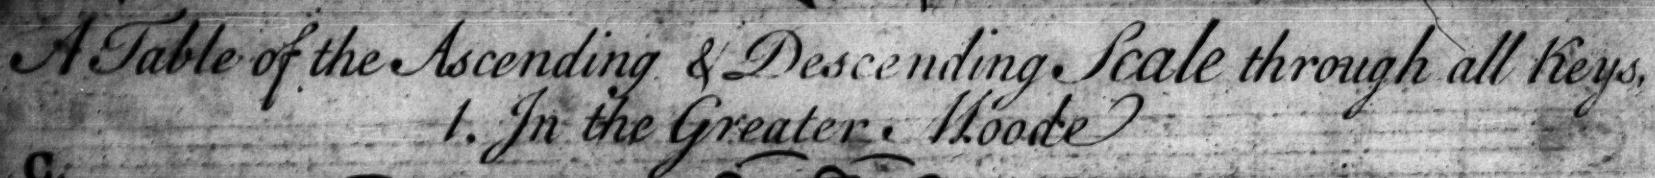 A Table of the Ascending & Descending Scale through all Keys,
1. In the Greater Moode
C.